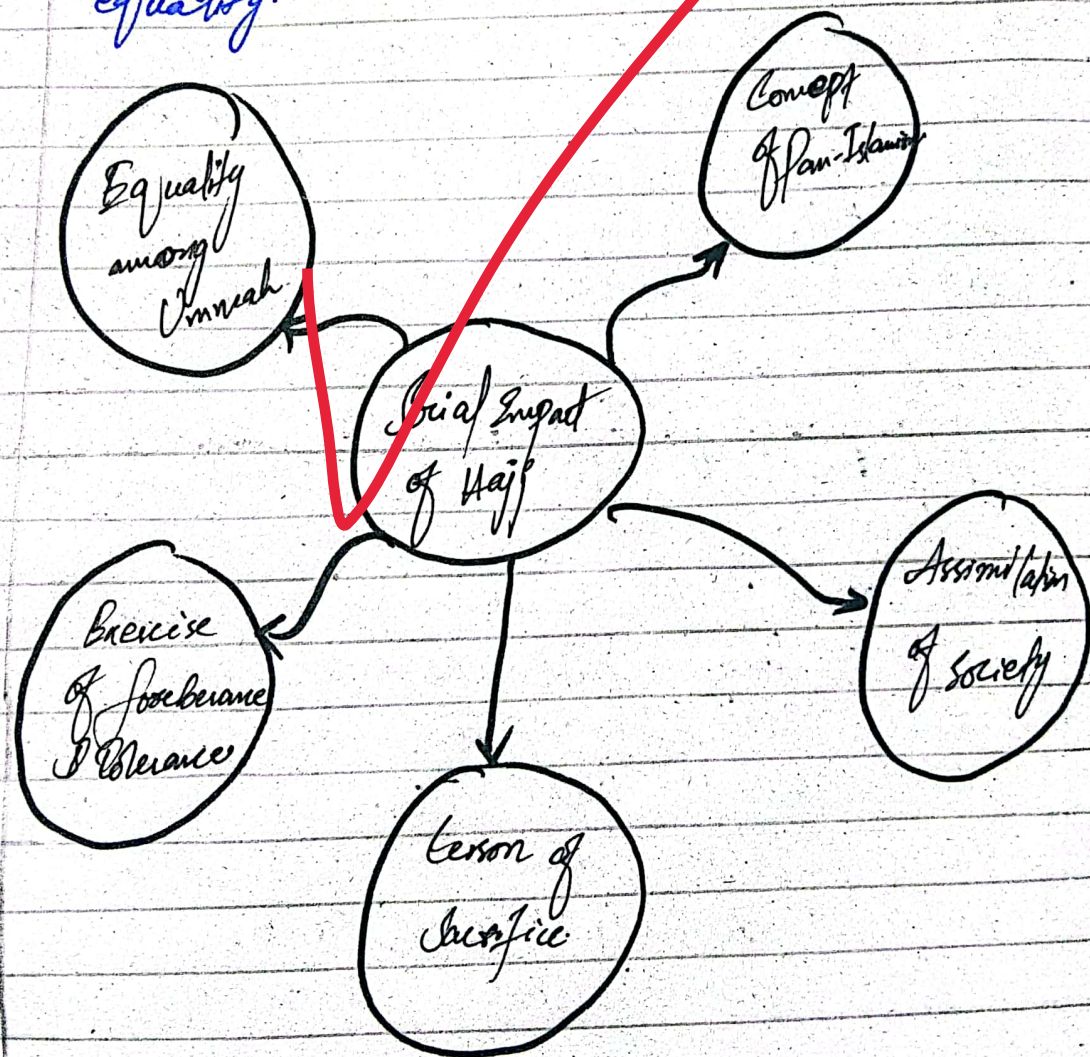 equality.
Equality
among
Ummah
Concept
of Pan-Islamism
Social Impact
of Hajj
Exercise
of forebearance
& Tolerance
Assimilation
of society
Lesson of
Sacrifice.